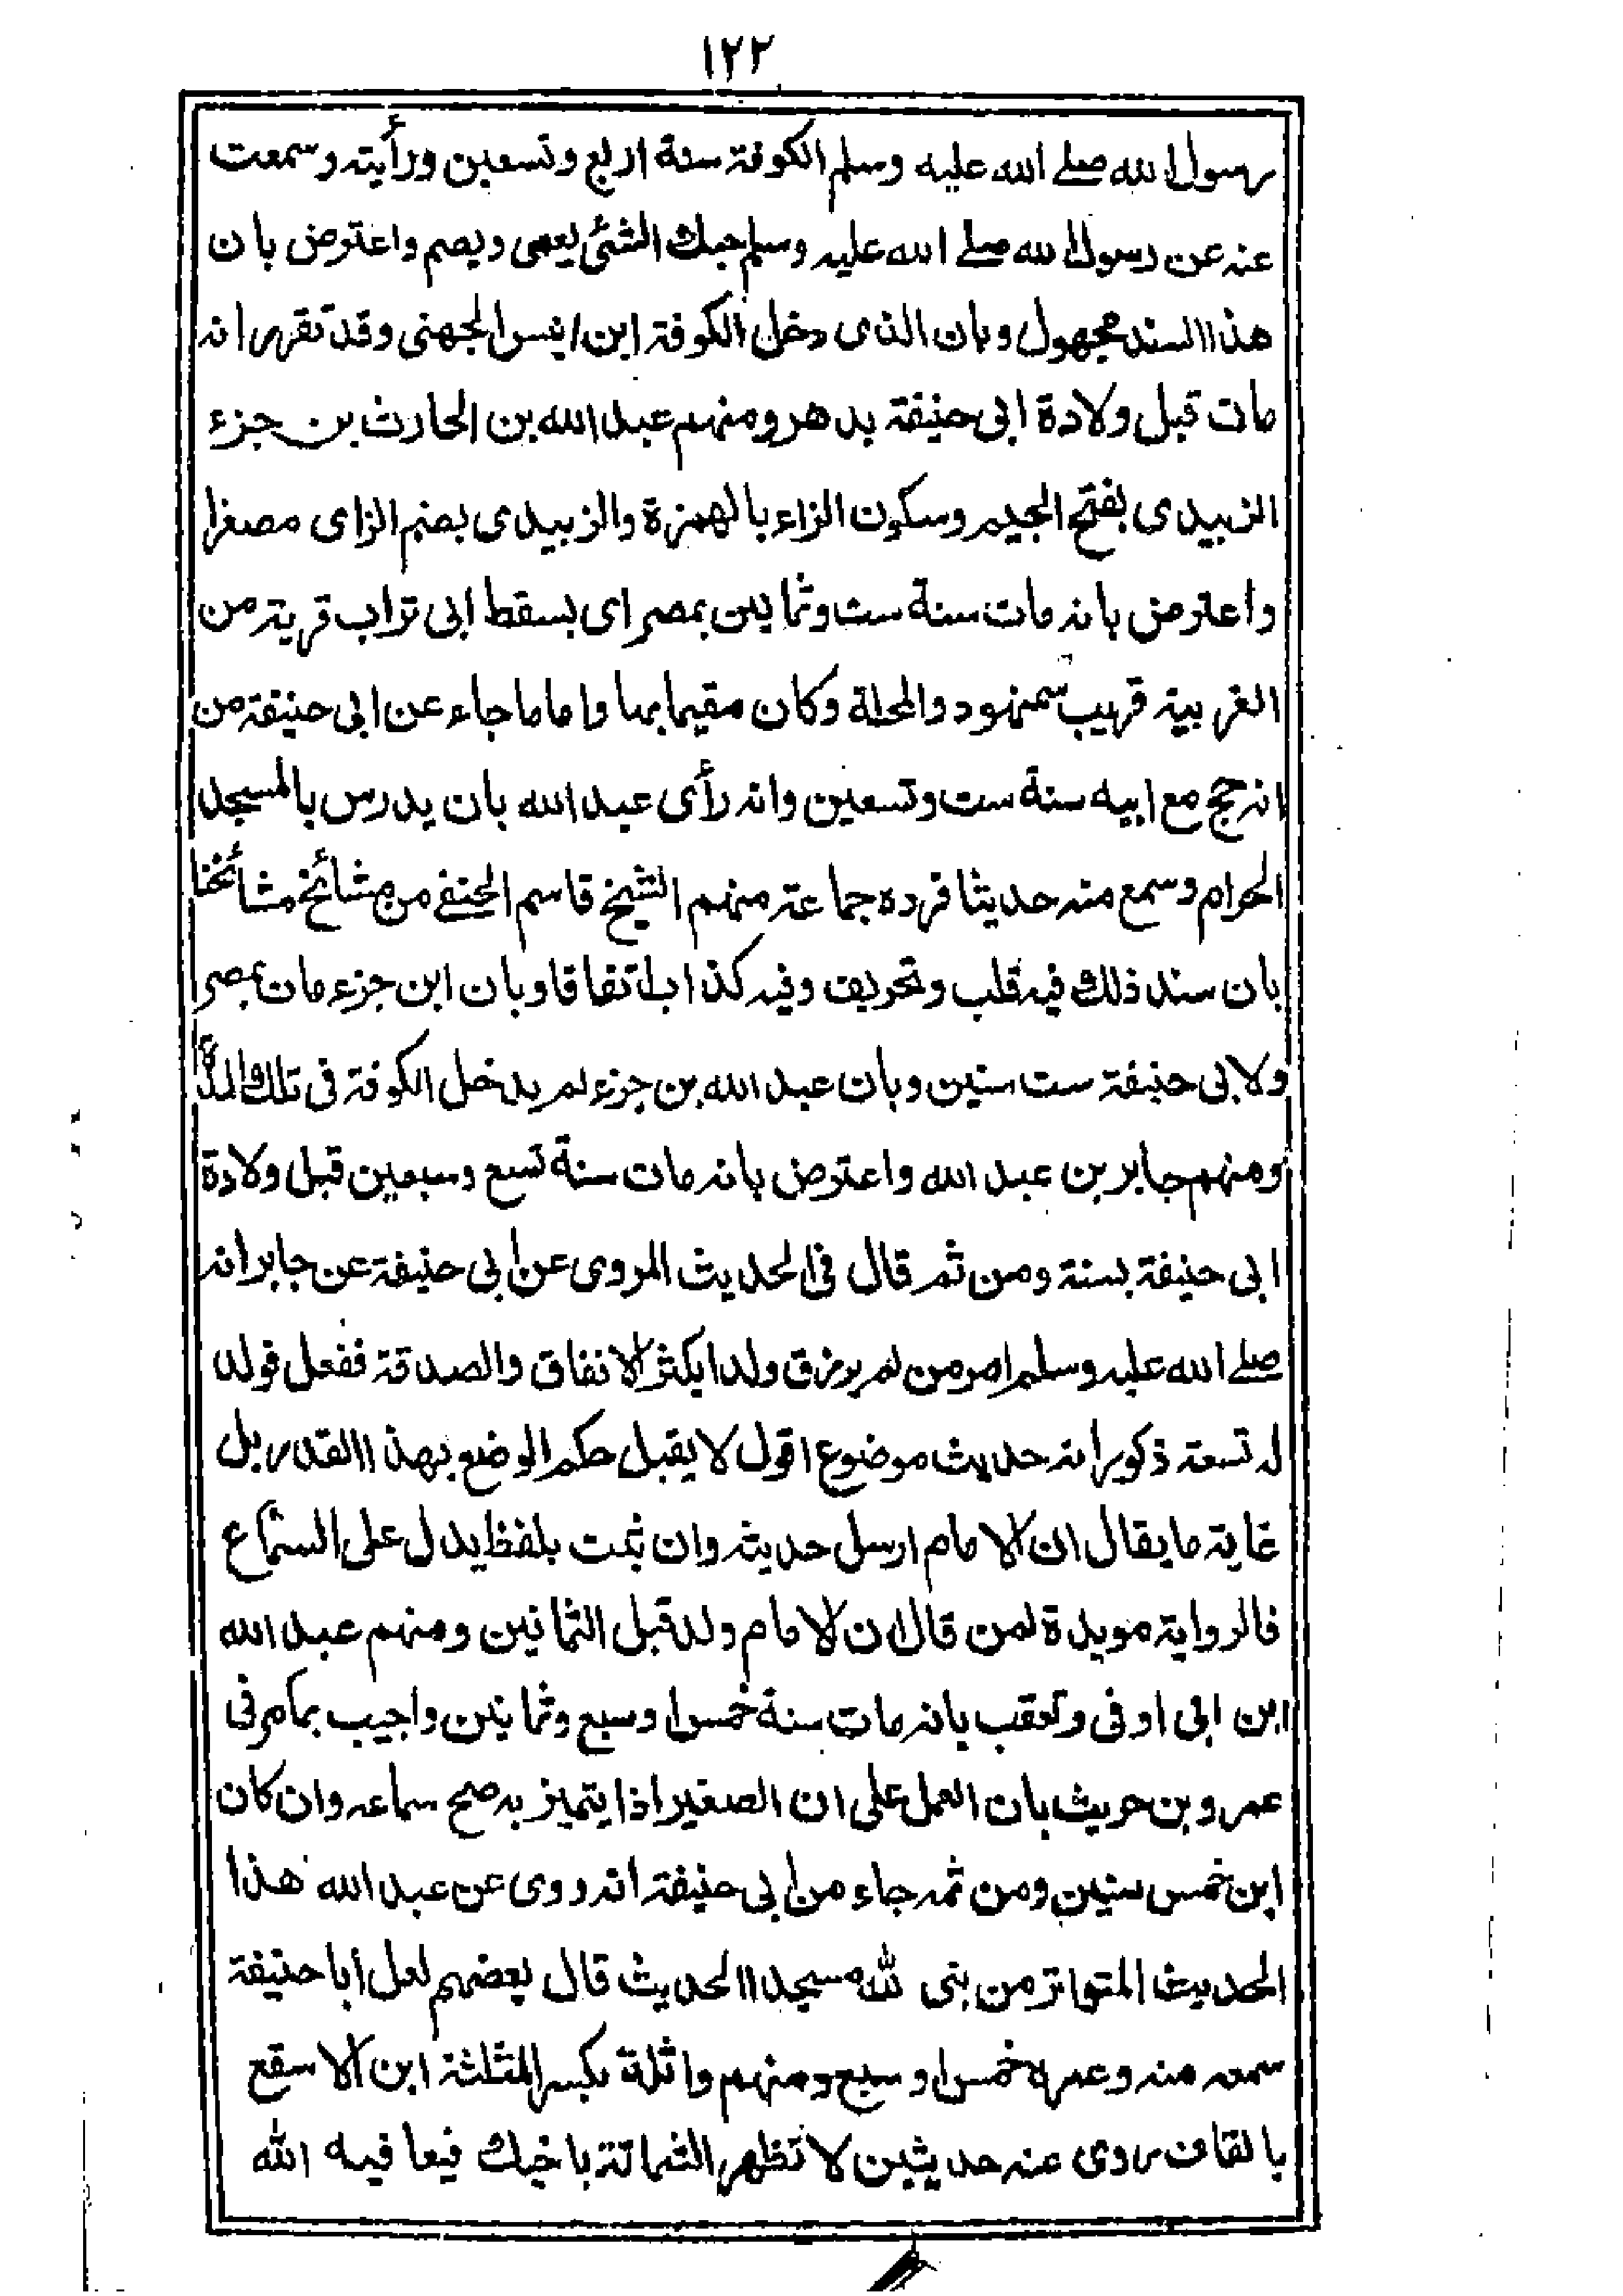 ١٢٢
رسول الله صلے الله عليه وسلم الكوفة سنة اربع وتسعين ورأيته وسمعت
عنه عن رسول الله صلے الله عليه وسلم حبك الشئى يعمى ويصم واعترض بان
هذا السند مجهول وبان الذى دخل الكوفة ابن انيس الجهنى وقد تقرر انه
مات قبل ولادة ابى حنيفة بدهر ومنهم عبد الله بن الحارث بن جزء
الزبيدى بفتح الجيم وسكون الزاء بالهمزة والزبيدى بضم الزاى مصغرا
واعترض بانه مات سنة ست وثمانين بمصر اى بسقط ابى تراب قرية من
الغربية قريب سمنهود والمحلة وكان مقيما بها واما ما جاء عن ابى حنيفة من
انه حج مع ابيه سنة ست وتسعين وانه رأى عبد الله بان يدرس بالمسجد
الحرام وسمع منه حديثا فرده جماعة منهم الشيخ قاسم الحنفے من مشائخ مشائخنا
بان سند ذلك فيه قلب وتحريف وفيه كذاب اتفاقا وبان ابن جزء مات بمصر
ولابى حنيفة ست سنين وبان عبد الله بن جزء لم يدخل الكوفة فى تلك المدة
ومنهم جابر بن عبد الله واعترض بانه مات سنة تسع وسبعين قبل ولادة
ابى حنيفة بسنة ومن ثم قال فى الحديث المروى عن ابى حنيفة عن جابر انه
صلے الله عليه وسلم امر من لم يرزق ولدا يكثر الانفاق والصدقة ففعل فولد
له تسعة ذكور انه حديث موضوع اقول لا يقبل حكم الوضع بهذا القدر بل
غاية ما يقال ان الامام ارسل حديثه وان ثبت بلفظ يدل على السماع
فالرواية مويدة لمن قال ان الامام ولد قبل الثمانين ومنهم عبد الله
ابن ابى اوفى وتعقب بانه مات سنة خمس او سبع وثمانين واجيب بما مر فى
عمرو بن حريث بان العمل على ان الصغير اذا يتميز به صح سماعه وان كان
ابن خمس سنين ومن ثمه جاء من ابى حنيفة انه روى عن عبد الله هذا
الحديث المتواتر من بنى لله مسجدا الحديث قال بعضهم لعل أبا حنيفة
سمعه منه وعمره خمس او سبع ومنهم واثلة بكسر المثلثة ابن الاسقع
بالقاف روى عنه حديثين لا تظهر الشماتة باخيك فيعافيه الله